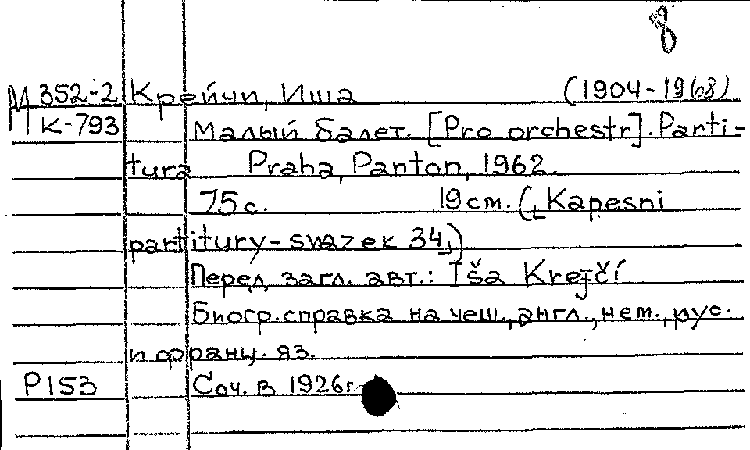 8
М 352-2 Крейчи, Иша (1904-1968)
К-793 Малый балет. [Pro orchestr]. Parti-
tura Praha, Panton, 1962.
75 с. 19 см. („Kapesni
partitury - svazek 34„)
Перед загл. авт.: Iša Krejčí
Биогр. справка на чеш., англ., нем., рус.
и франц. яз.
Р153 Соч. в 1926г.